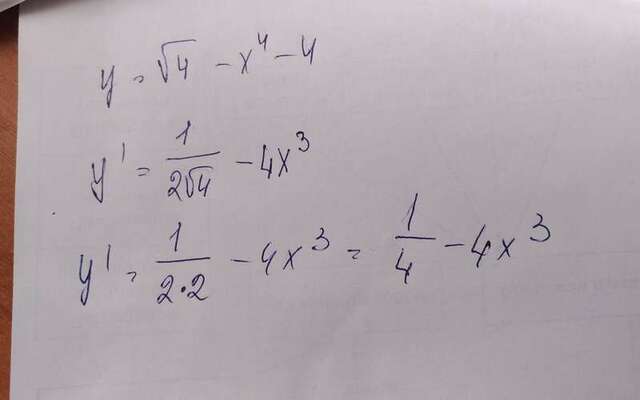 y = √4 - x⁴ - 4
y' = 1/(2√4) - 4x³
y' = 1/(2·2) - 4x³ = 1/4 - 4x³